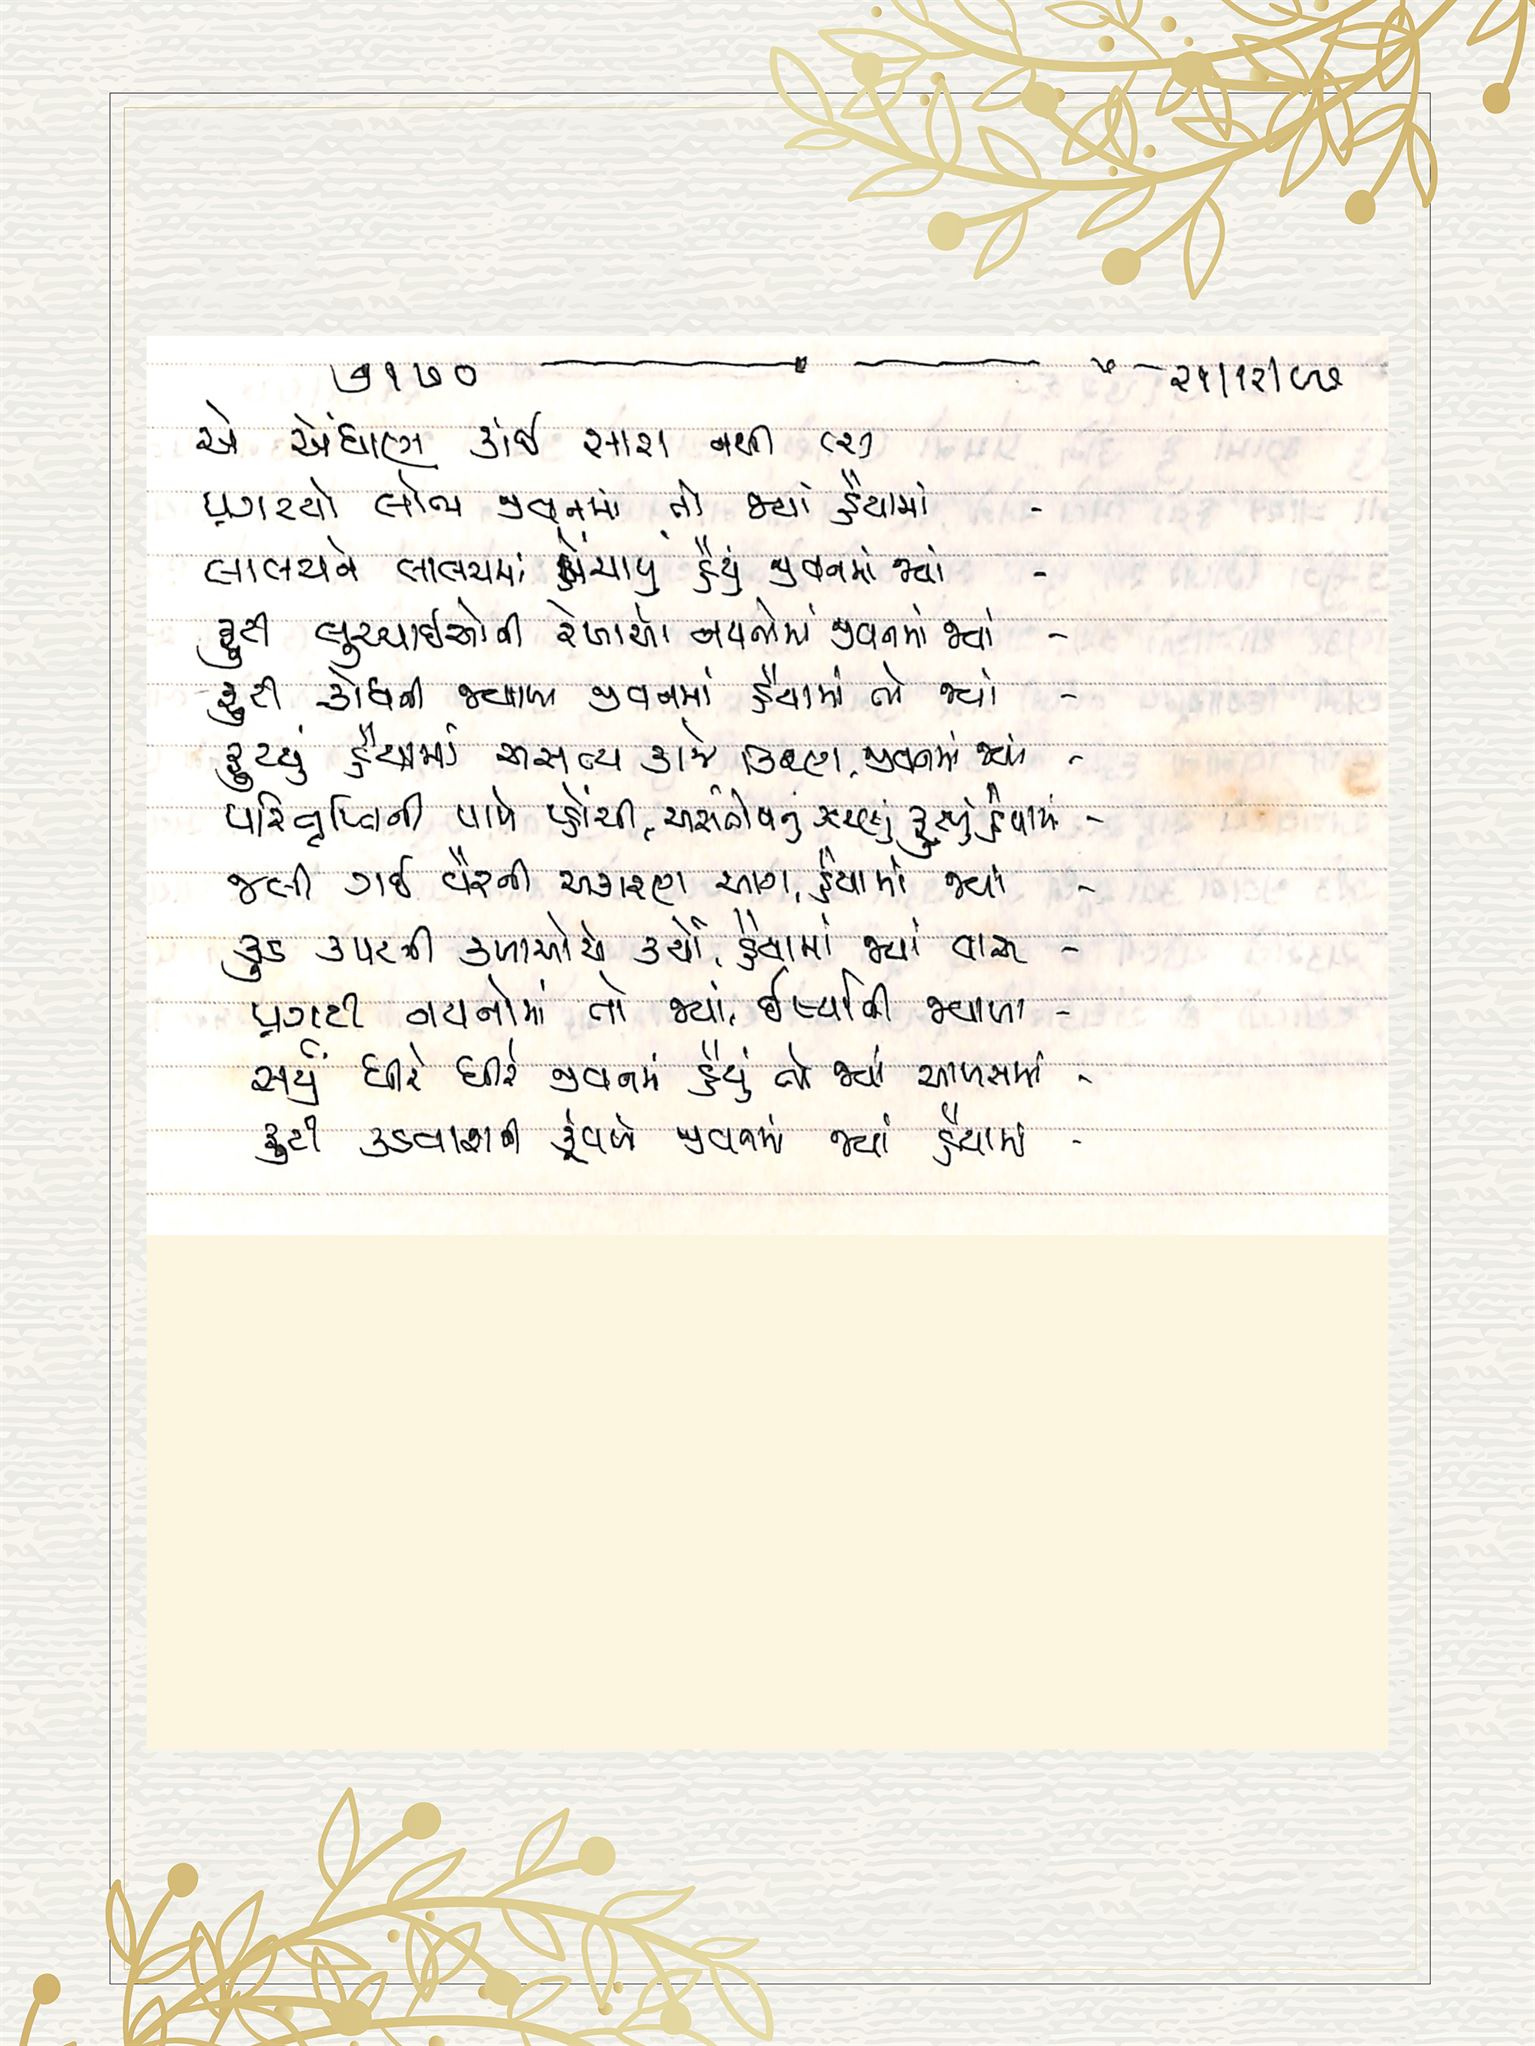 ૭૧૭૦ ૨૧/૧૨/૯૭
એ એંધાણ કાંઈ સારા નથી (૨)
પ્રગટયો લોભ જીવનમાં તો જ્યાં હૈયામાં -
લાલચને લાલચમાં ખેંચાયું હૈયું જીવનમાં જ્યાં -
ફુટી લુચ્ચાઈઓની રેખાઓ નયનોમાં જીવનમાં જ્યાં -
ફુટી ક્રોધની જ્વાળા જીવનમાં હૈયામાં તો જ્યાં -
ફુટયું હૈયામાં અસત્ય કાજે કિરણ, જીવનમાં જ્યાં -
પરિતૃપ્તિની પાળે પ્હોંચી, અસંતોષનું ઝરણું ફુટ્યું હૈયામાં -
જલી ગઈ વૈરની અકારણ આગ, હૈયામાં જ્યાં -
કુડ કપટની કળાઓએ કર્યો, હૈયામાં જ્યાં વાસ -
પ્રગટી નયનોમાં તો જ્યાં, ઈર્ષ્યાની જ્વાળા -
સર્યું ધીરે ધીરે જીવનમાં હૈયું તો જ્યાં આળસમાં -
ફુટી કડવાશની કૂંપળે જીવનમાં જ્યાં હૈયામાં -